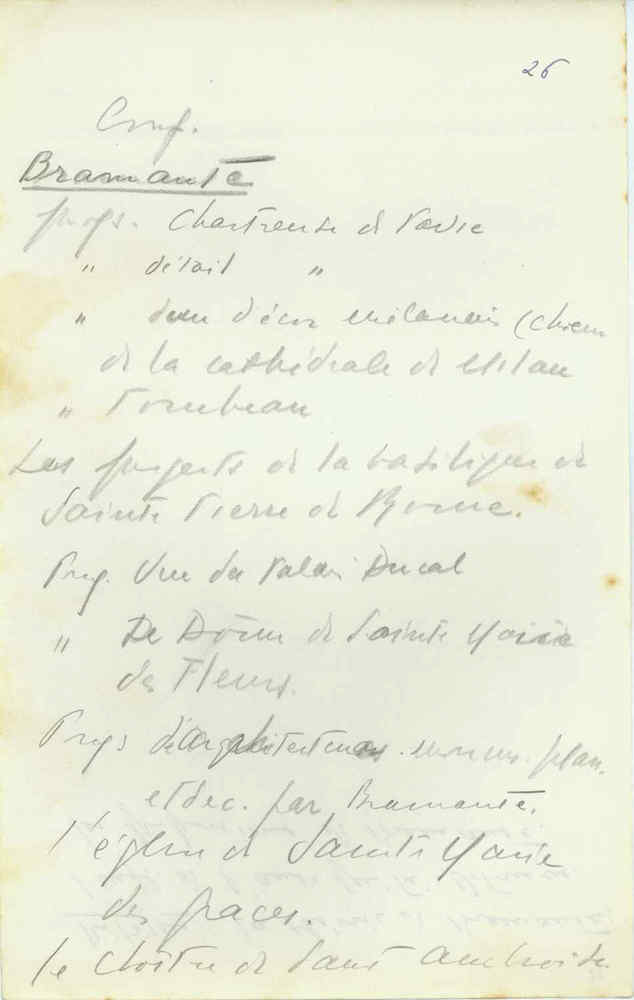 26
Conf.
Bramante
projs. Chartreuse de Pavie
" détail "
" d'un décor milanais (choeur
de la cathédrale de Milan
" Tombeau
Les projets de la basilique de
Sainte Pierre de Rome.
Proj. Vue du Palais Ducal
" De Dôme de Sainte Marie
des Fleurs.
Projs d'architectures plan.
et déc. par Bramante.
l'église de Sainte Marie
des graces.
le cloître de Saint Ambroise